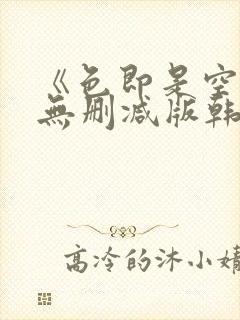 《色即是空
無删减版韩
高冷的沐小婧